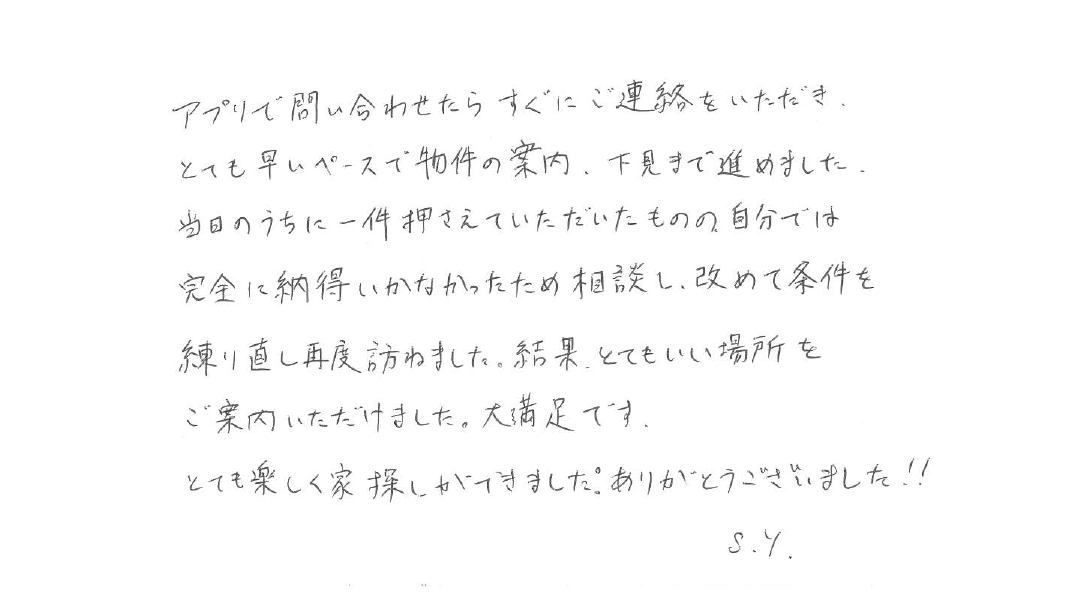 アプリで問い合わせたらすぐにご連絡をいただき、
とても早いペースで物件の案内、下見まで進めました。
当日のうちに一件押さえていただいたものの、自分では
完全に納得いかなかったため相談し、改めて条件を
練り直し再度訪ねました。結果、とてもいい場所を
ご案内いただけました。大満足です。
とても楽しく家探しができました。ありがとうございました!!
S.Y.